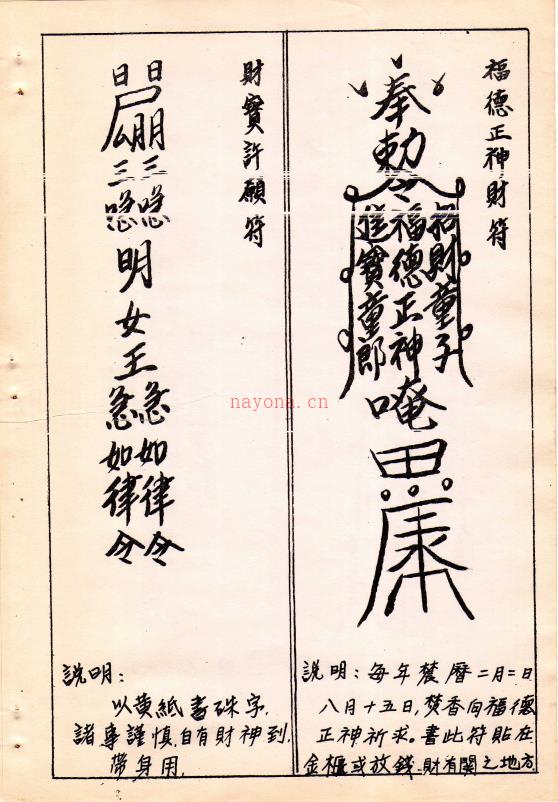 福德正神財符
奉勅令
招財童子
福德正神
進寶童郎
唵
説明：每年農曆二月二日
八月十五日，焚香向福德
正神祈求。書此符貼在
金櫃或放錢.財有関之地方
財寶許願符
日日
明女王
急如律令
急如律令
説明：
以黄紙書硃字，
諸事謹慎，自有財神到，
帶身用，
nayona.cn